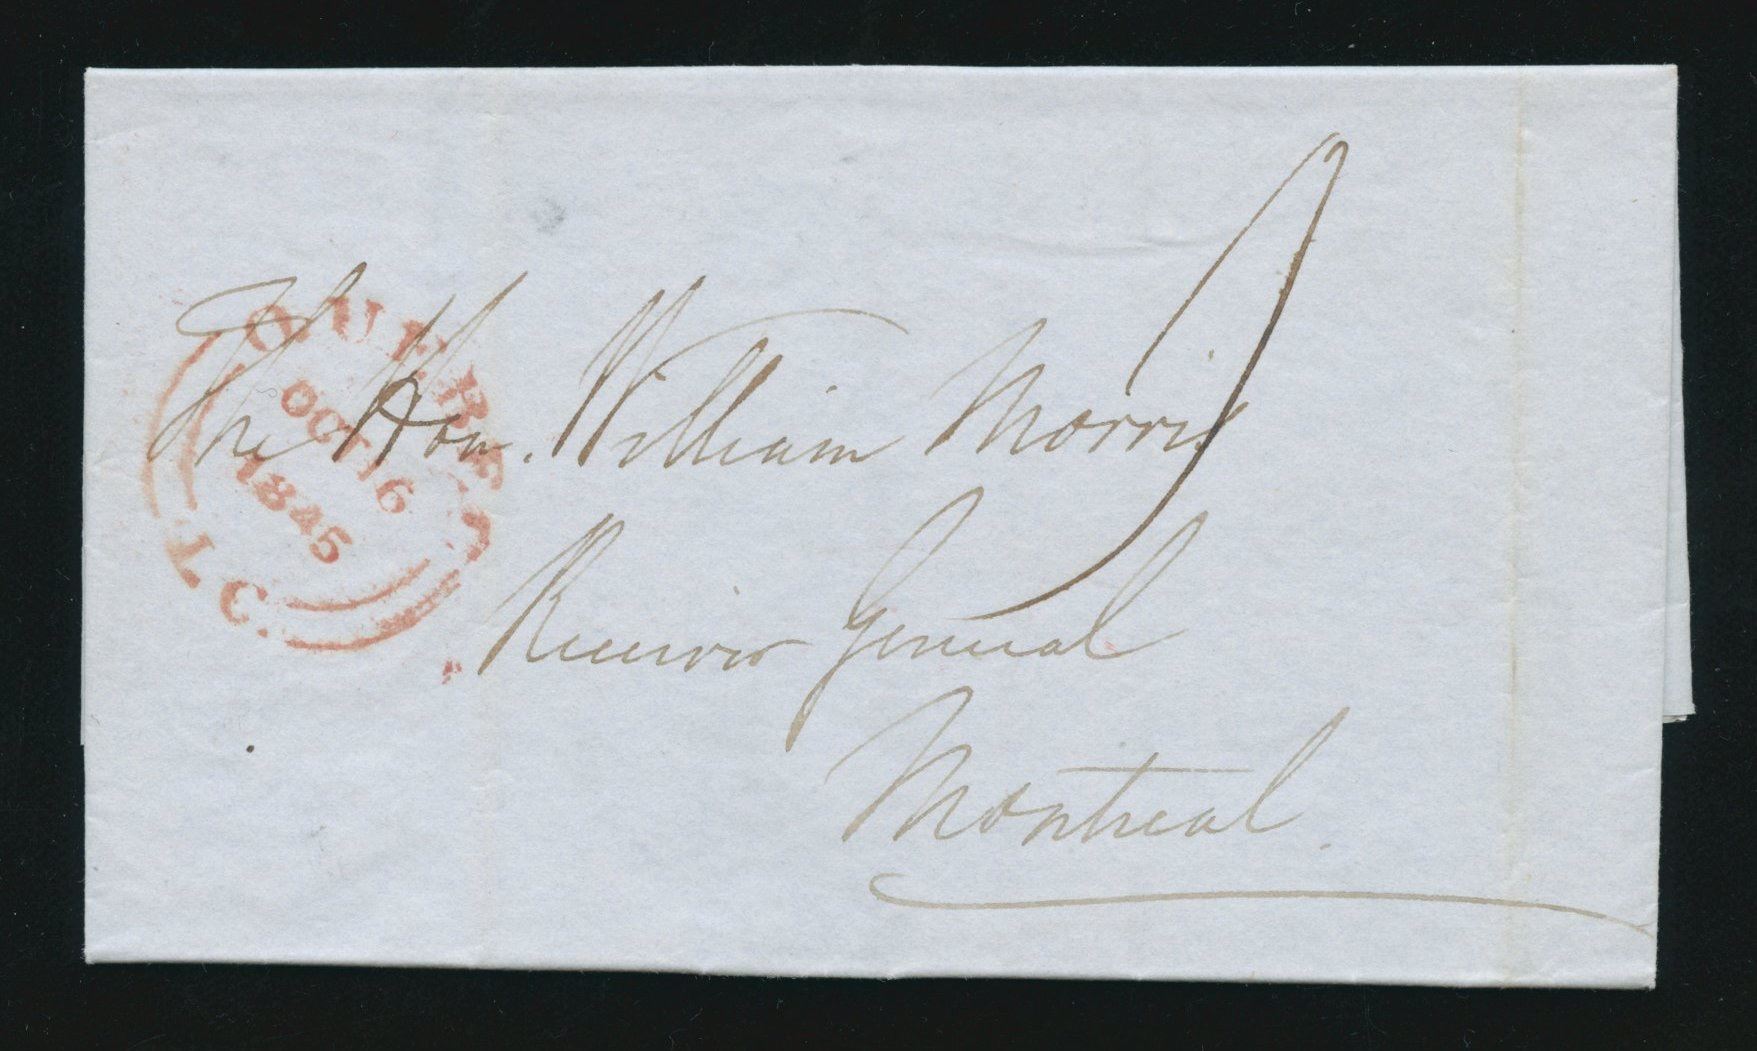 The Hon. William Morris
Receiver General
Montreal.
QUEBEC
L.C.
OCT 16
1845